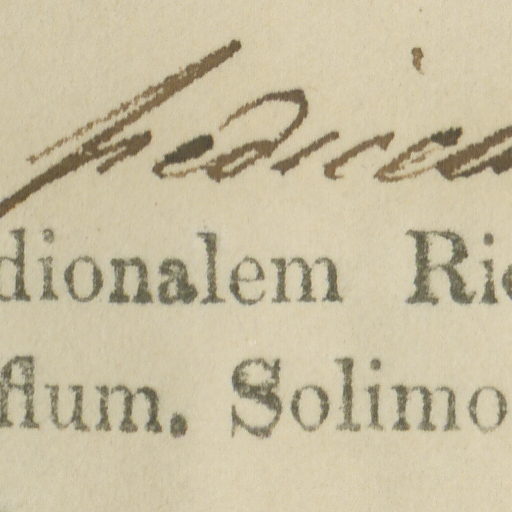 dionalem Rio
flum. Solimo